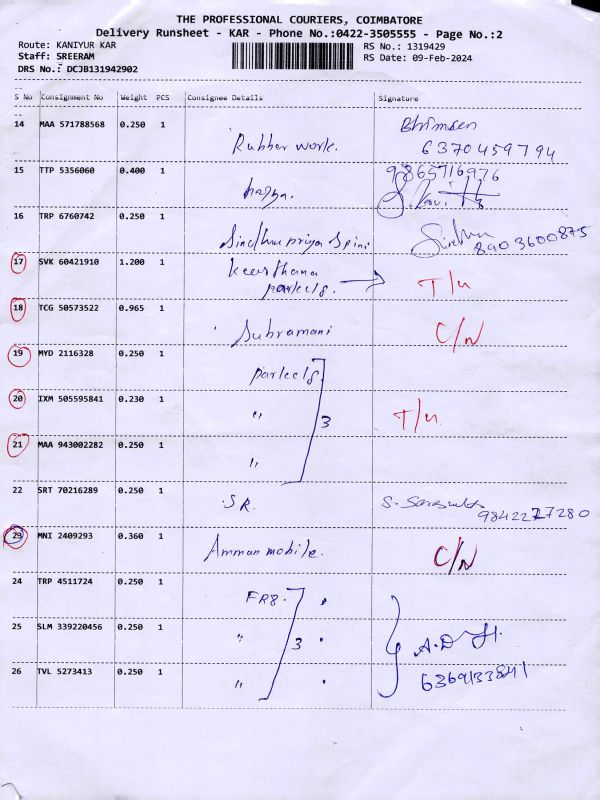 THE PROFESSIONAL COURIERS, COIMBATORE
Delivery Runsheet - KAR - Phone No.:0422-3505555 - Page No.:2
Route: KANIYUR KAR RS No.: 1319429
Staff: SREERAM RS Date: 09-Feb-2024
DRS No.: DCJB131942902
S No Consignment No Weight PCS Consignee Details Signature
14 MAA 571788568 0.250 1 Rubber work. Bhimsen
6370459794
15 TTP 5356060 0.400 1 9865716976
16 TRP 6760742 0.250 1 Sindhu priya Spini Sindhu
8903600875
17 SVK 60421910 1.200 1 Keerthana
parcels. → T/u
18 TCG 50573522 0.965 1 Subramani C/N
19 MYD 2116328 0.250 1 parcels
20 IXM 505595841 0.230 1 " 3 T/u.
21 MAA 943002282 0.250 1 "
22 SRT 70216289 0.250 1 SR.
9842277280
23 MNI 2409293 0.360 1 Amman mobile. C/N
24 TRP 4511724 0.250 1 FR8.
25 SLM 339220456 0.250 1 " 3
26 TVL 5273413 0.250 1 " 6369133841